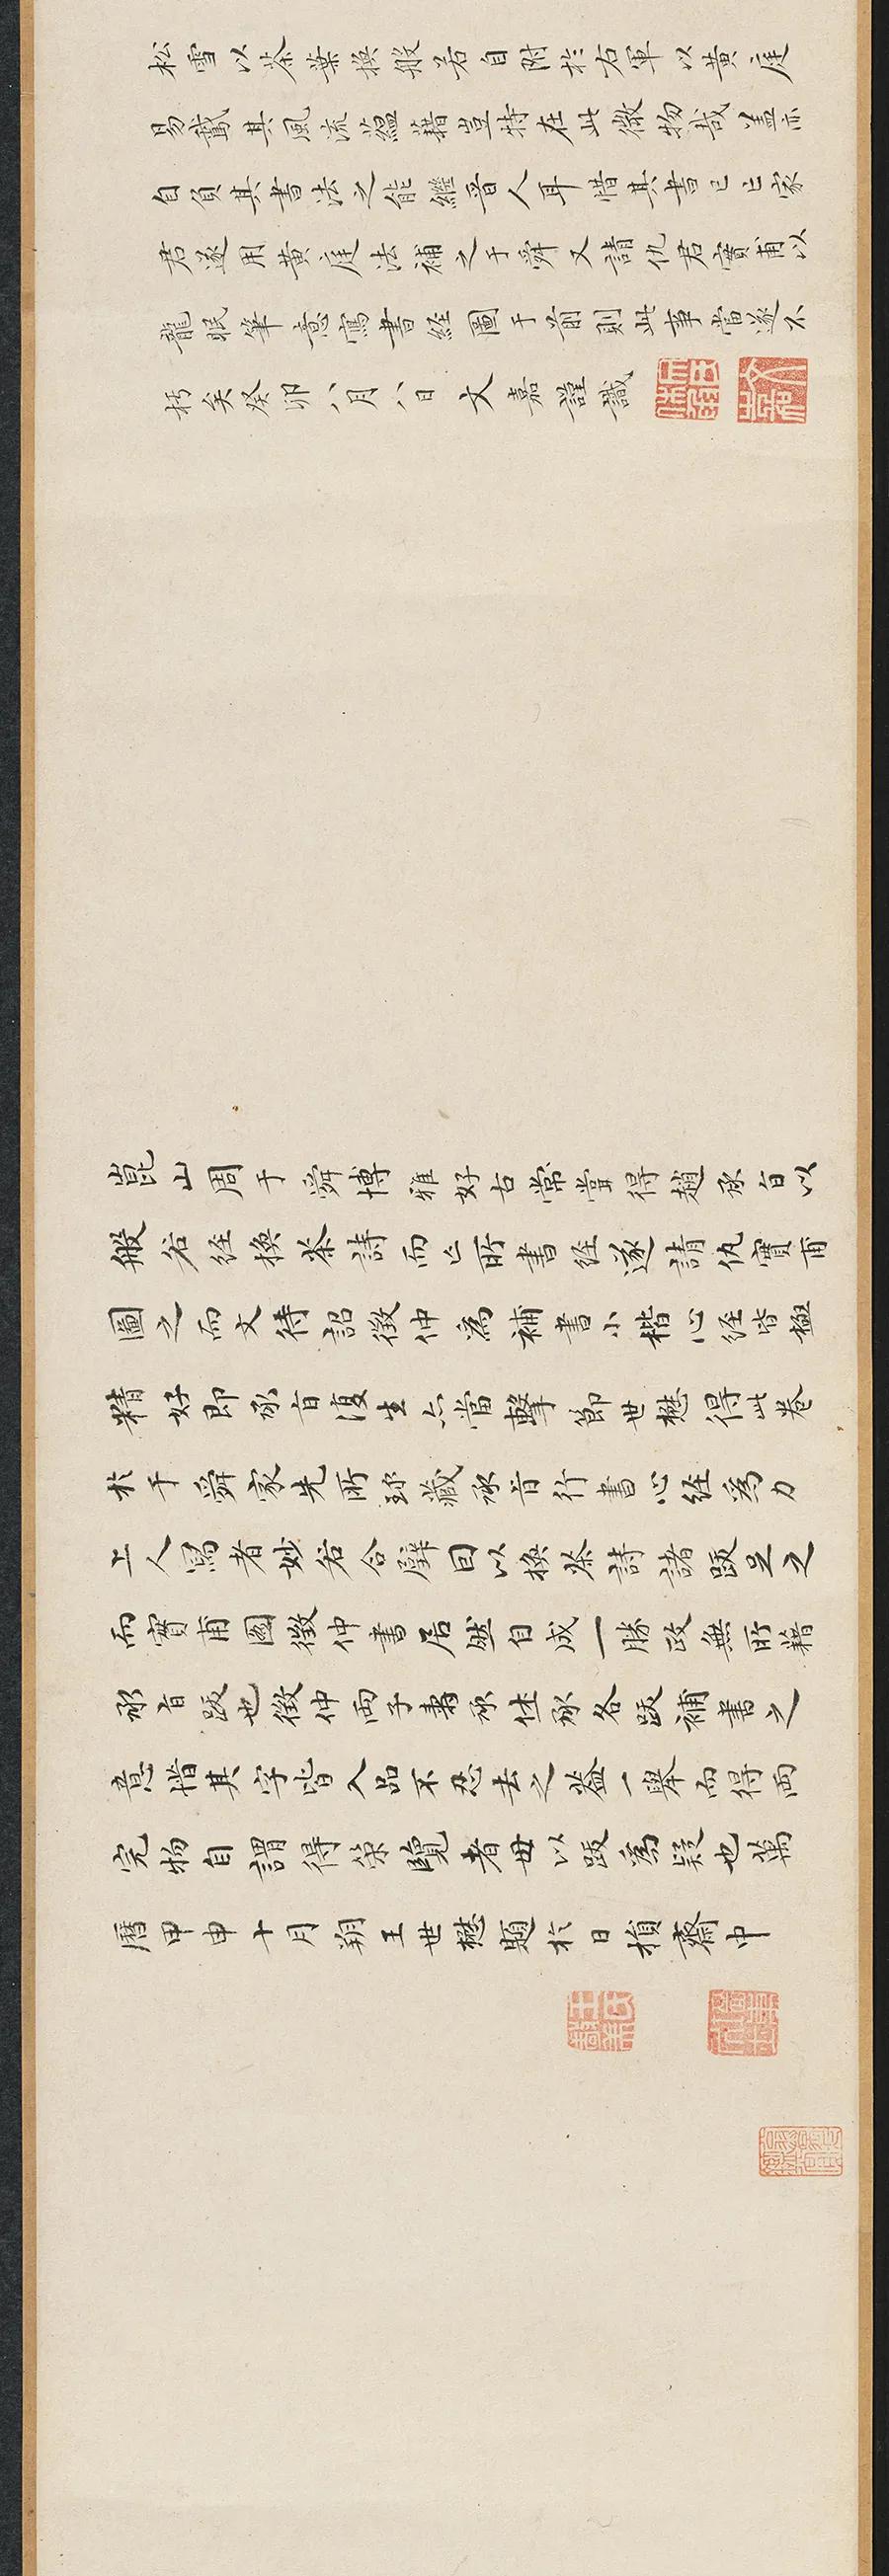 松雪以茶葉換般若自附於右軍以黄庭
易鵞其風流蘊藉豈特在此微物哉盖亦
自負其書法之能繼晋人耳惜其書已亡家
君遂用黄庭法補之于舜又請仇君實甫以
龍眠筆意寫書經圖于前則此事當遂不
朽矣癸卯八月八日文嘉謹識
崑山周于舜博雅好古常嘗得趙承旨以
般若經換茶詩而亡所書經遂請仇實甫
圖之而文待詔徵仲為補書小楷心經皆極
精好即承旨復生亦當擊節世懋得此卷
於于舜家先所珎藏承旨行書心經為力
上人寫者妙若合璧回以換茶詩諸跋足之
而實甫圖徵仲書居然自成一勝政無所藉
承旨跋也徵仲両子壽承休承各跋補書之
意惜其字皆入品不忍去之葢一舉而得両
完物自謂得筞覽者毋以跋為疑也萬
曆甲申十月朔王世懋題於日損齋中